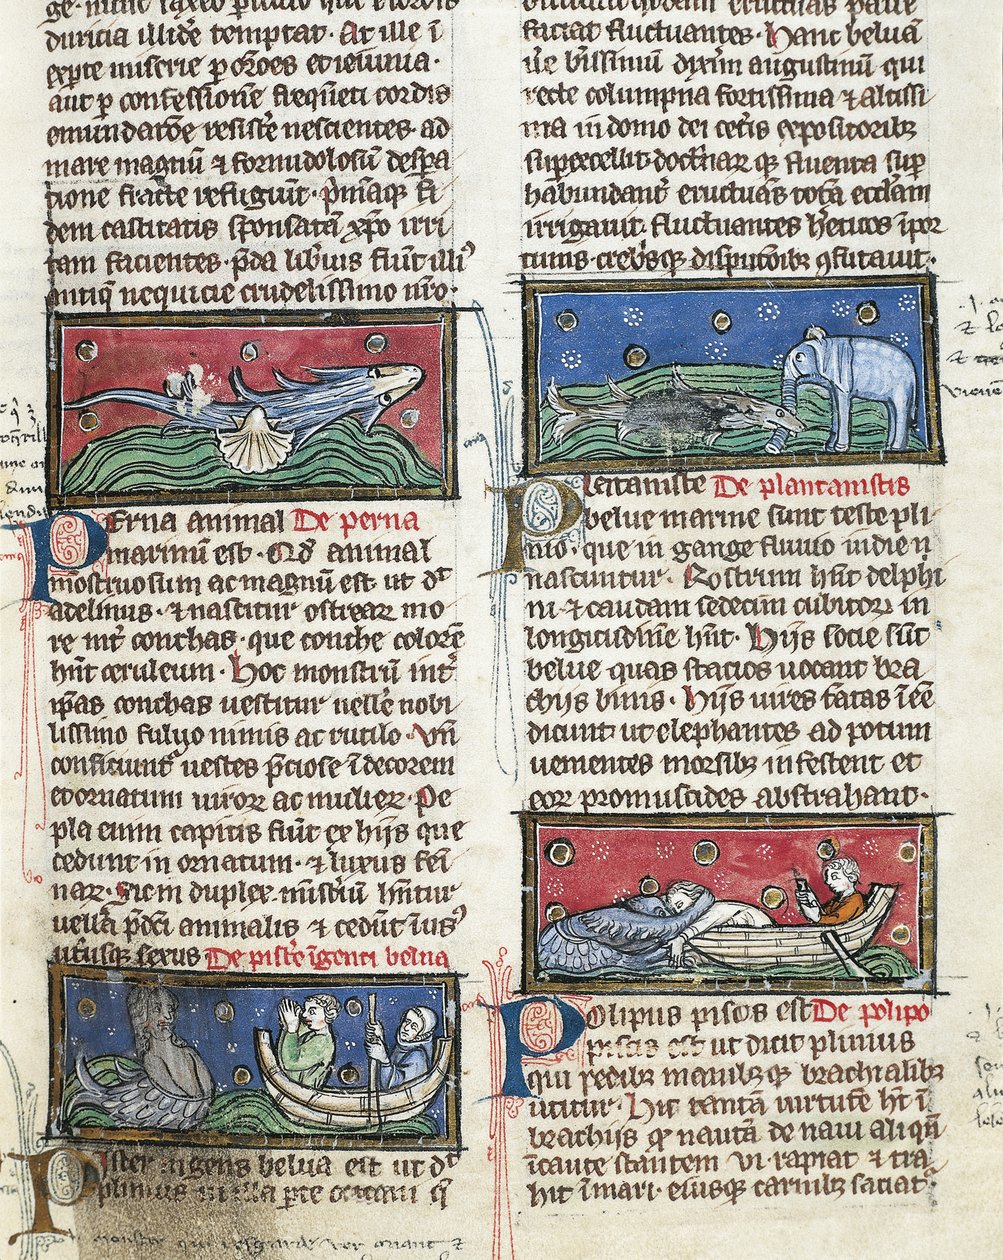 duricia illide temptat. At ille i
expte miserie p orōes et ieiunia.
aut p confessionē freqūeti cordis
emundatōe resistē nescientes. ad
mare magnū ⁊ formidolosū despa
tione fracte refugiūt. p̄maq; fi
dem castitatis sponsatā xp̄o irri
tam facientes. p̄da libius fiūt illi⁹
antiq nequicie crudelissimo n̄ro.
PErna animal De perna
marinū est. Qd animal
mōstruosum ac magnū est ut dt
adelinus. ⁊ nascitur ostrear mo
re int conchas. que conche colorē
hn̄t ceruleum. Hoc monstrū int
ip̄as conchas vestitur vellē nobi
lissimo fuluo nimis ac rutilo. Vn̄
conficiunt vestes p̄ciose ī decorem
et ornatum viror ac mulier. Pe
pla enim capitis fiūt ex hijs que
cedunt in ornatum. ⁊ luxus fēi
nar. Sic in duplex mīstriū hn̄tur
vellā p̄dci animalis ⁊ cedūt ī us⁹
utriusq; sexus De pistē īgenti belua
Pister ingens belua est ut dt
plinius in illa pte occeani q̄
factat fluctuantes. Hanc beluā
vē btissimū dixīm augustinū qui
recte columpna fortissima ⁊ altissi
ma in domo dei cetīs expositorib;
supexcellit. doctrīar q; fluenta sup
habundant eructuās totā ecclam
irrigauit. fluctuantes heticos īpor
tunis crebsq; disputōib; 9futauit.
PLeitaniste De plantanistis
belue marine sunt teste pli
nio. que in gange fluuio indie n̄
nascuntur. Rostrum hn̄t delphi
ni ⁊ caudam sedecim cubitor in
longitudīne hn̄t. Hijs socie sūt
belue quas stacios vocant bra
chijs binis. Hijs vires tātas īeē
dicunt ut elephantes ad potum
uementes morsib; infestent et
eor promuscides abstrahant.
POlipus piscis est De polipo
piscis est ut dicit plinius
qui pedib; manib; q; brachialib;
utitur. Hic tantā virtutē ht ī
brachijs q̄ nautā de naui aliqn̄
īcaute stantem vi rapiat ⁊ tra
hit ī mari. eiusq; carnib; saciat.